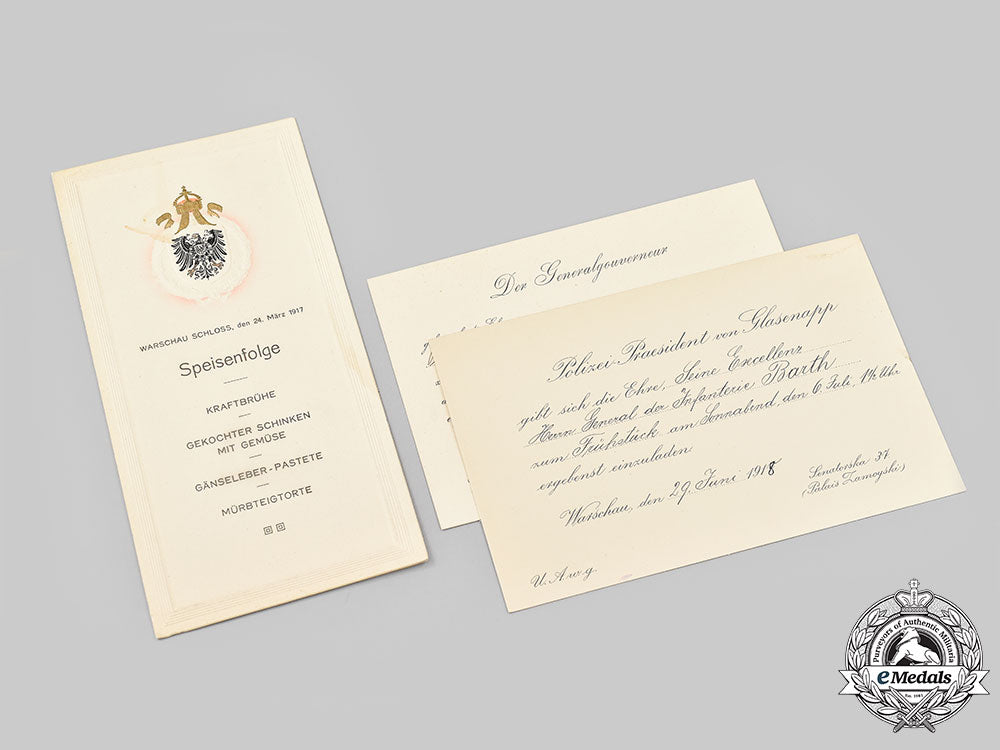 WARSCHAU SCHLOSS, den 24. März 1917
Speisenfolge
KRAFTBRÜHE
GEKOCHTER SCHINKEN
MIT GEMÜSE
GÄNSELEBER-PASTETE
MÜRBTEIGTORTE
Der Generalgouverneur
Polizei-Praesident von Glasenapp
gibt sich die Ehre, Seine Excellenz
Herrn General der Infanterie Barth
zum Frühstück am Sonnabend, den 6. Juli, 1½ Uhr
ergebenst einzuladen
Warschau, den 29. Juni 1918
Senatorska 37
(Palais Zamoyski)
U. A. w. g.
Purveyors of Authentic Militaria
eMedals